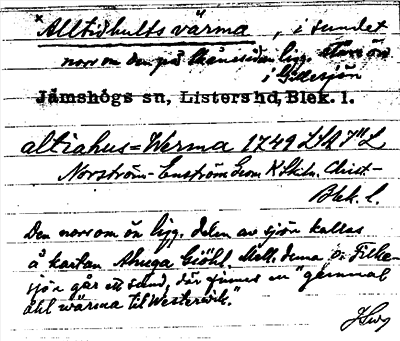 *Alltidhults värma, i sundet
norr om den på Skånesidan ligg. stora ön
i Gillesjön
Jämshögs sn, Listers hd, Blek. l.
altiahus=Werma 1749
Norström-Enström Geom. Christ-
Blek. l.
Den norr om ön ligg. delen av sjön kallas
å kartan Abuga Giöhl. Mell. denna o. Filke-
sjön går ett sund, där finnes en "gammal
åhl wärma til Westerwik."